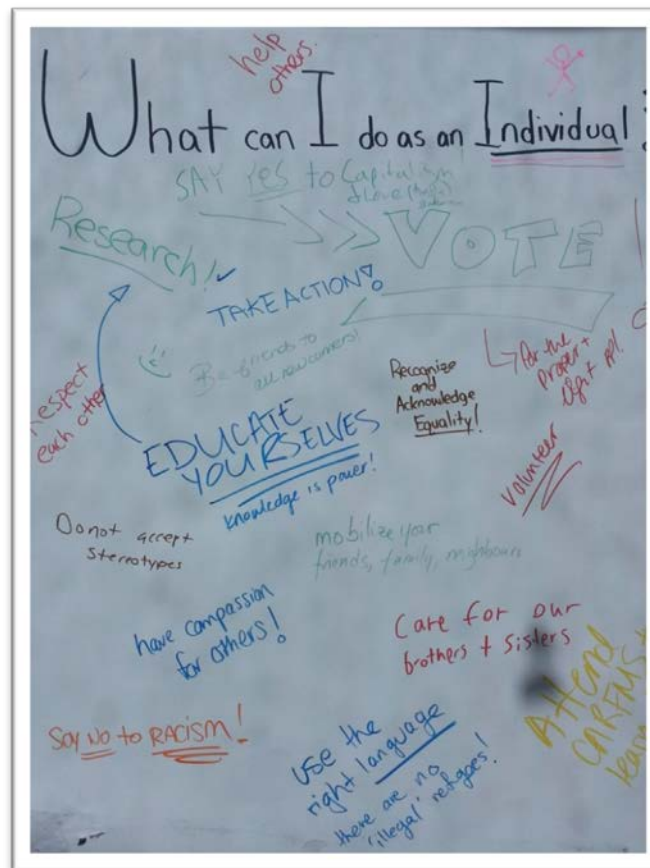 help
others.
What can I do as an Individual
SAY YES to Capitalism
& Love
Research!
VOTE
TAKE ACTION!
B = friends to
all newcomers!
for the
proper &
right
Recognize
and
Acknowledge
Equality!
respect
each other
EDUCATE
YOURSELVES
knowledge is power!
Volunteer
Do not accept
stereotypes
mobilize your
friends, family, neighbours
have compassion
for others!
Care for our
brothers + sisters
Attend
CARFMS +
learn
Say No to RACISM!
use the
right language
there are no
'illegal' refugees!